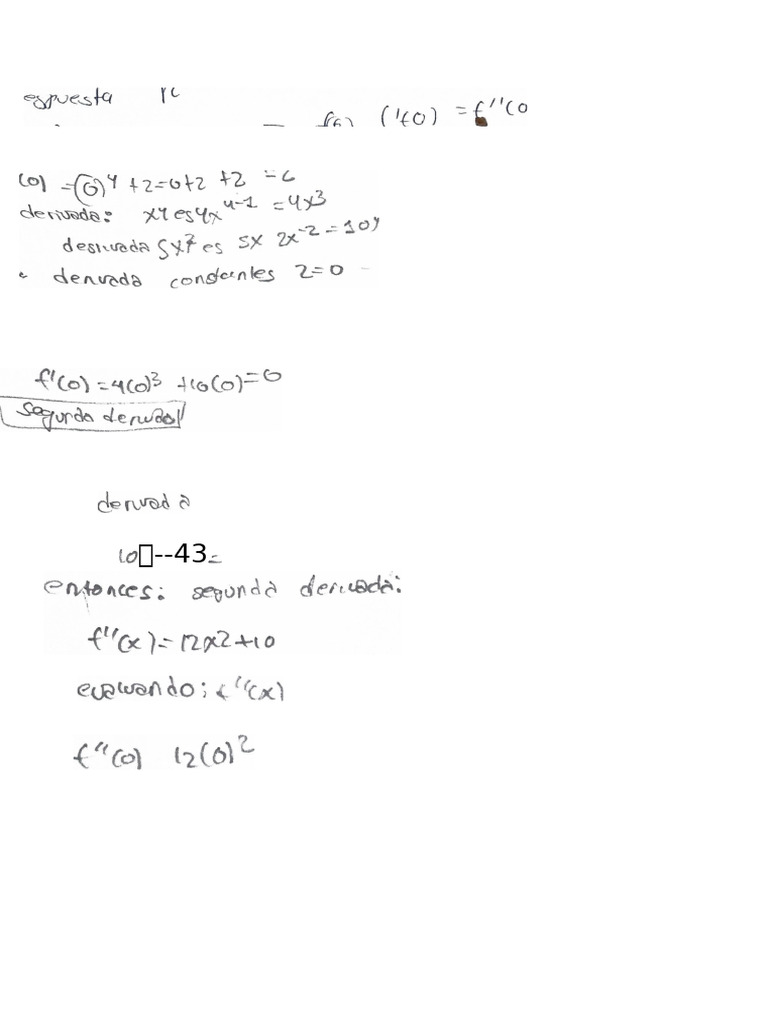 espuesta
('f0) = f''(0
(0) = (0)4 + 2 = 0+2 +2 = 6
derivada: x4 es 4x4-1 = 4x3
desiuvada 5x2 es 5x 2x-2 = 10y
derivada constantes 2=0
f'(0) = 4(0)3 +10(0) = 0
segunda derivada
derivada
10 --43=
entonces: segunda derivada:
f''(x) = 12x2+10
evaluando: f''(x)
f''(0) 12(0)2